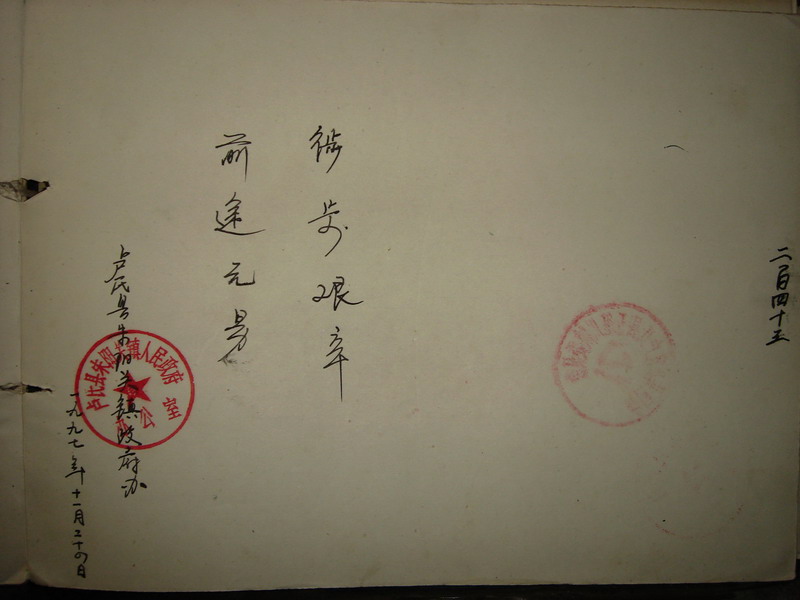 二百四十五
徙步艰辛
前途无易
卢氏县朱阳关镇政府办
一九九七年十一月二十四日
卢氏县朱阳关镇人民政府
办公室